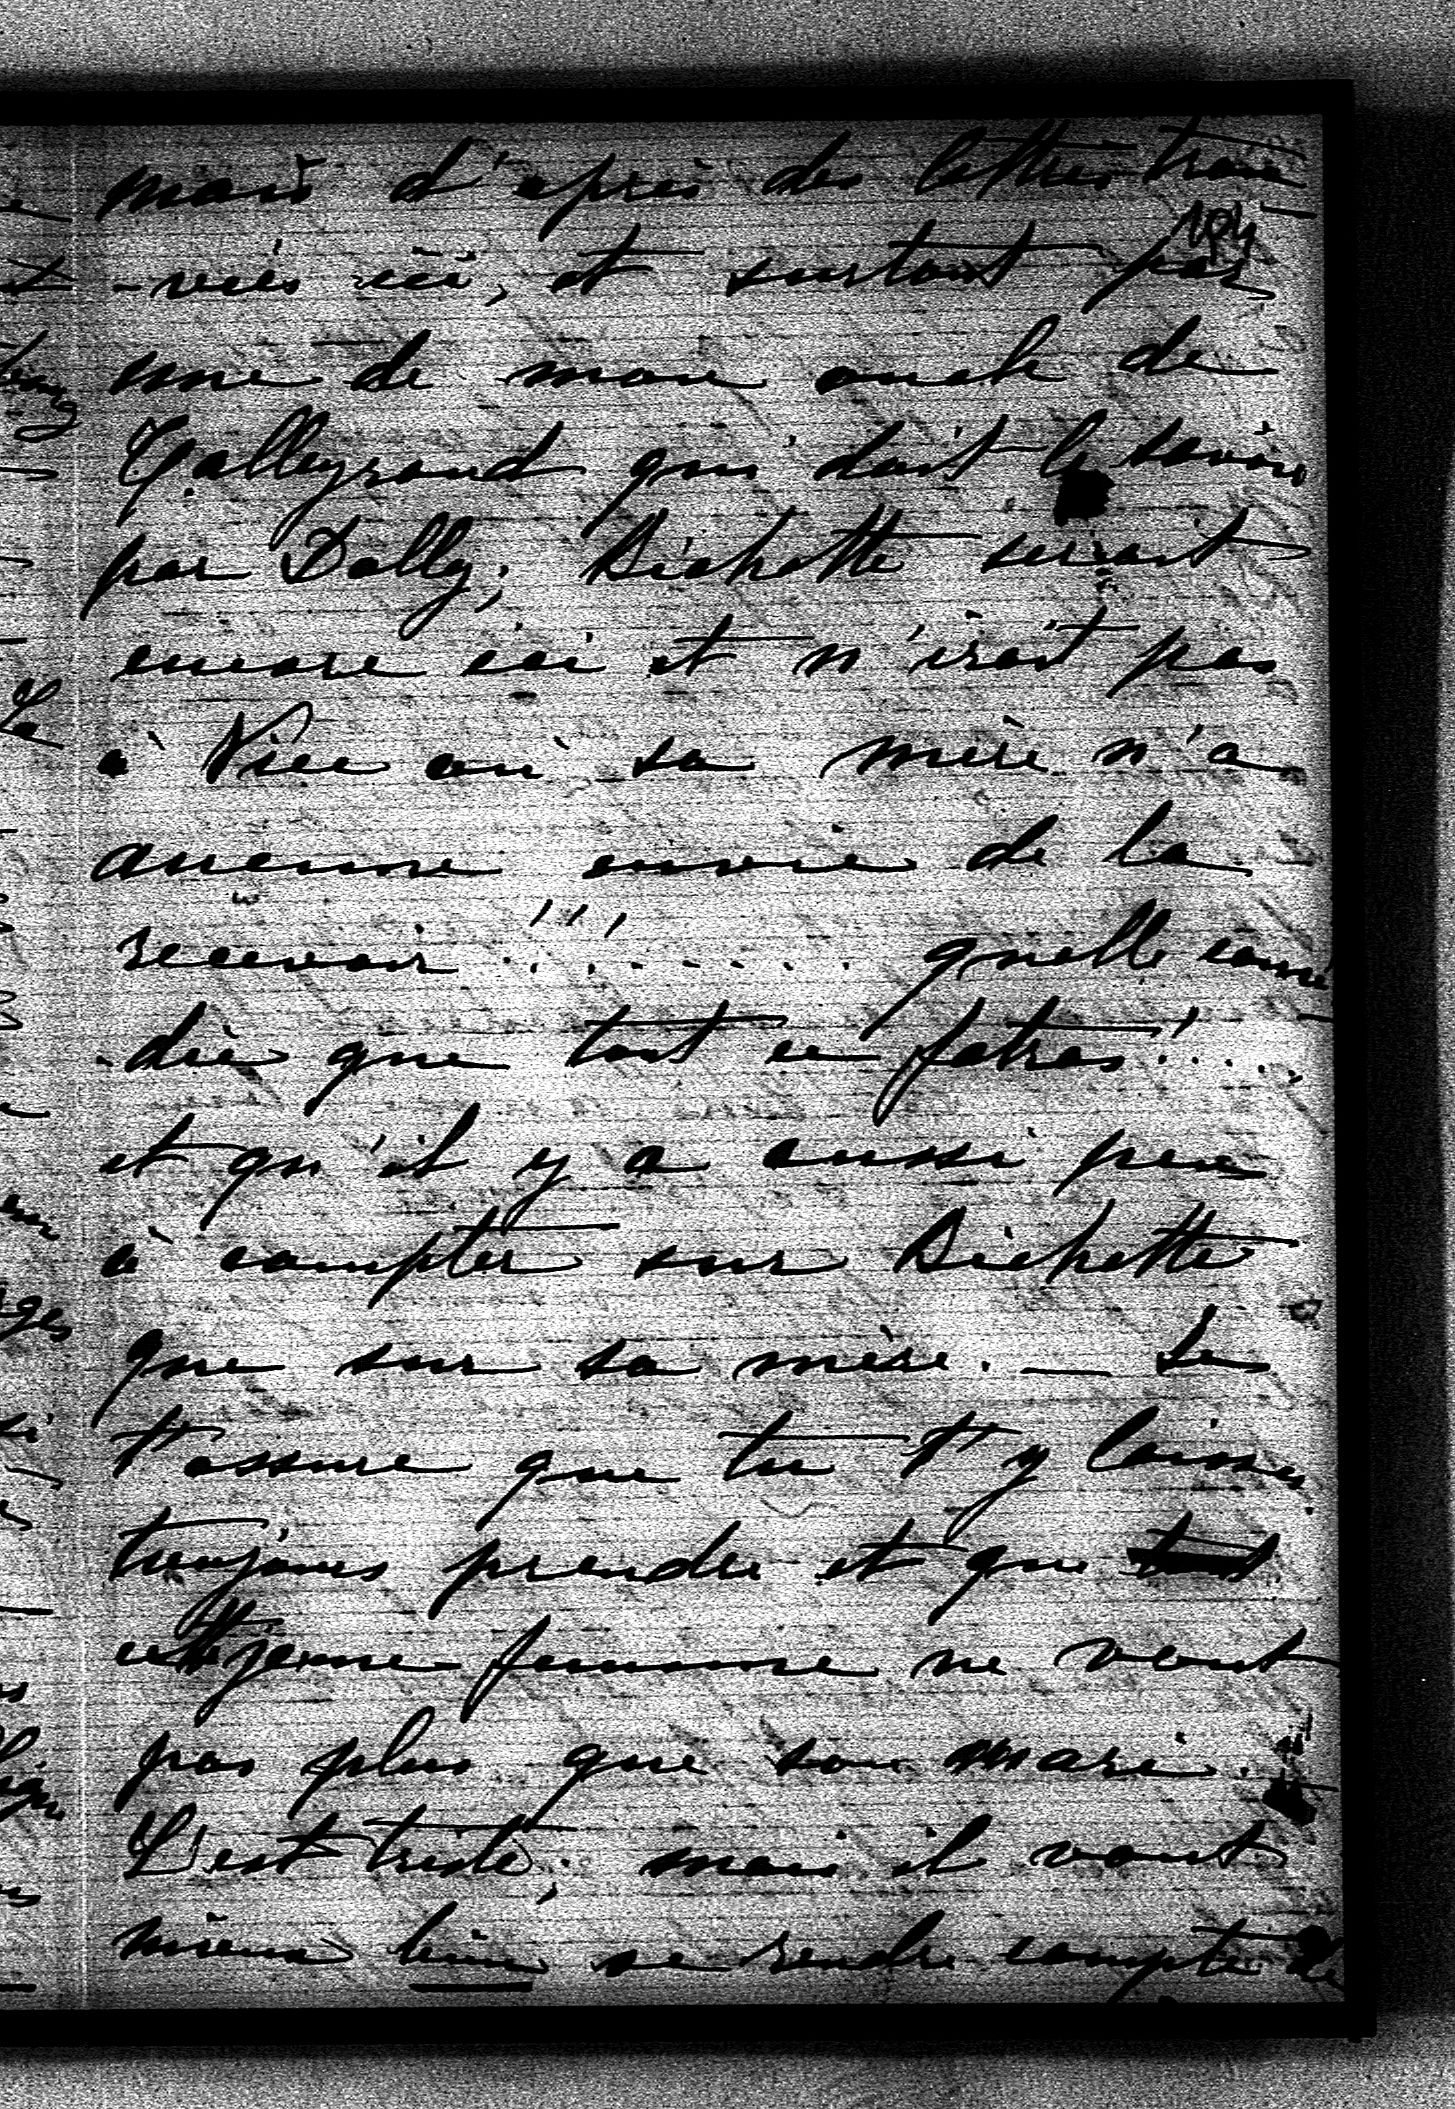 mais d'après des lettres trou
104
-vées ici, et surtout par
une de mon oncle de
Talleyrand qui doit le savoir
par Dolly, Bichette serait
encore ici et n'irait pas
à Nice où sa mère n'a
aucune envie de la
recevoir !!!....... quelle comé
-die que tout ce fatras!....
et qu'il y a aussi peu
à compter sur Bichette
que sur sa mère. — Je
t'assure que tu t'y laisses
toujours prendre et que
cette jeune femme ne vaut
pas plus que son mari.
C'est triste, mais il vaut
mieux bien se rendre compte de